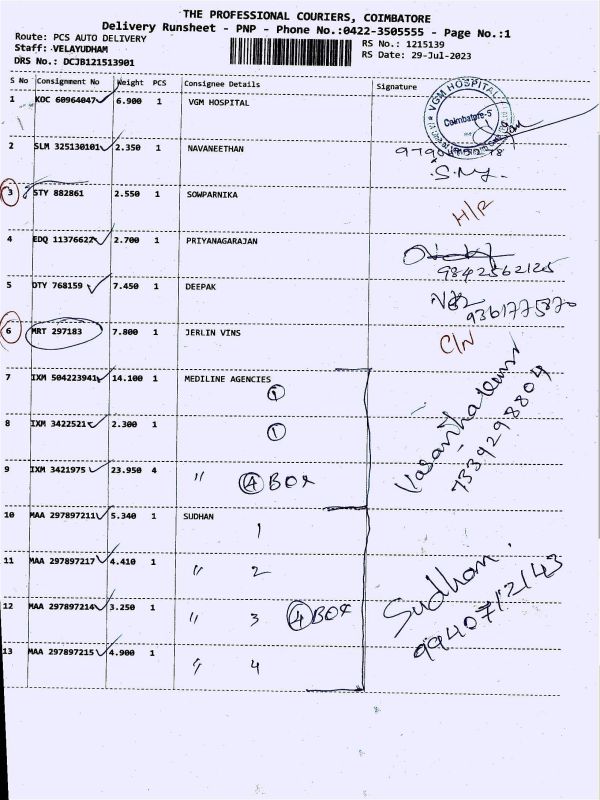 THE PROFESSIONAL COURIERS, COIMBATORE
Delivery Runsheet - PNP - Phone No.:0422-3505555 - Page No.:1
Route: PCS AUTO DELIVERY
RS No.: 1215139
Staff: VELAYUDHAM
RS Date: 29-Jul-2023
DRS No.: DCJB121513901
S No Consignment No Weight PCS Consignee Details Signature
1 KOC 60964047 6.900 1 VGM HOSPITAL
VGM HOSPITAL Coimbatore-5
2 SLM 325130101 2.350 1 NAVANEETHAN
3 STY 882861 2.550 1 SOWPARNIKA H/R
4 EDQ 11376622 2.700 1 PRIYANAGARAJAN
9842562125
5 DTY 768159 7.450 1 DEEPAK
9361775870
6 MRT 297183 7.800 1 JERLIN VINS C/N
7 IXM 504223941 14.100 1 MEDILINE AGENCIES
1
8 IXM 3422521 2.300 1
1
9 IXM 3421975 23.950 4
" 4 BOX
7339298804
10 MAA 297897211 5.340 1 SUDHAN
1
11 MAA 297897217 4.410 1
" 2
12 MAA 297897214 3.250 1
" 3 4 BOX
Sudhan.
9940712143
13 MAA 297897215 4.900 1
" 4